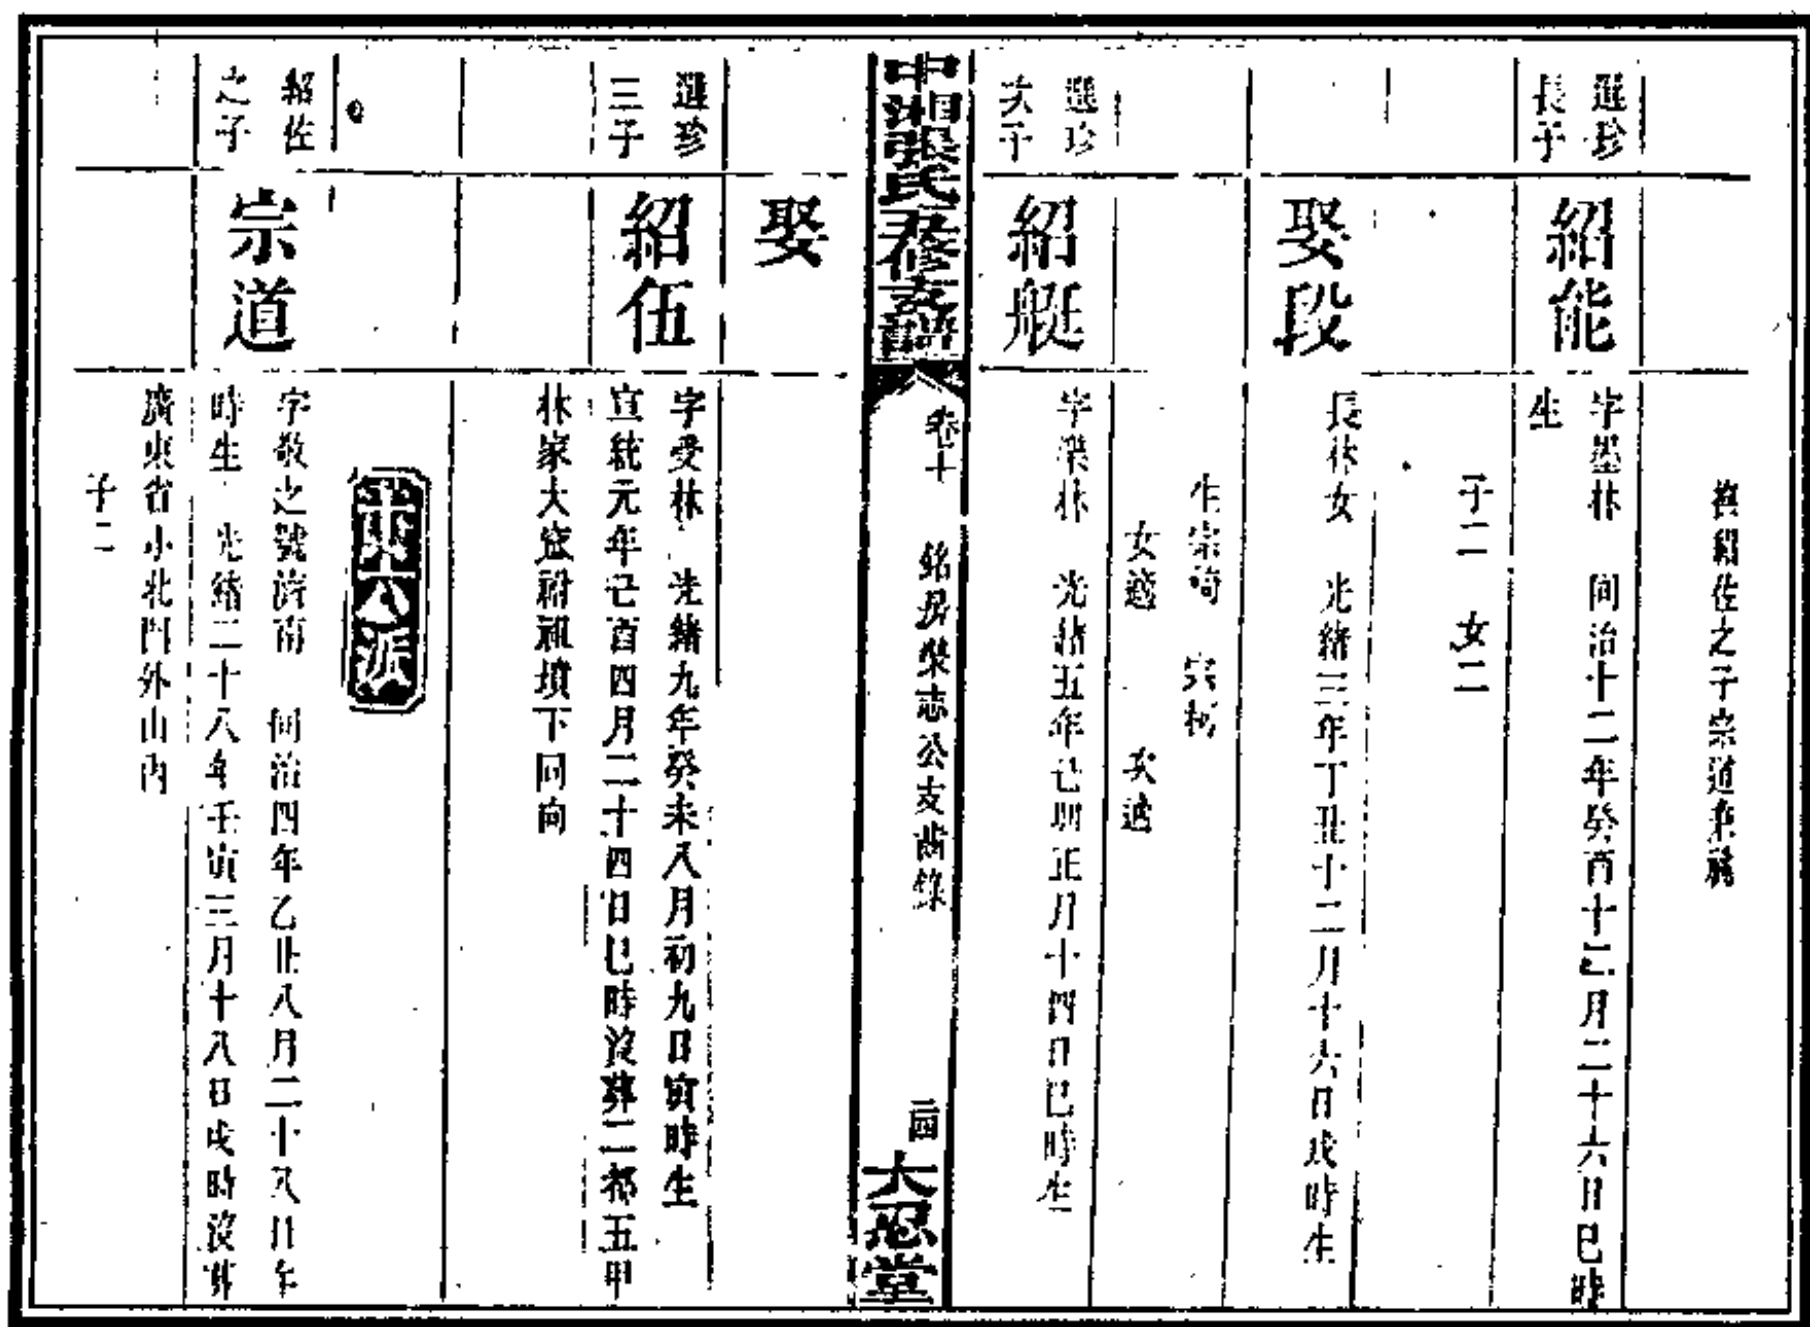 撫紹佐之子宗道兼祧
選珍
長子
紹能
字墨林 同治十二年癸酉十二月二十六日巳時
生
子二 女二
娶段
長林女 光緒三年丁丑十二月十六日戌時生
生宗 宗柯
女適 次適
選珍
次子
紹艇
字榮林 光緒五年己卯正月十四日巳時生
中湘張氏五修支譜
卷十
銘房榮志公支齒錄
二四
大忍堂
娶
選珍
三子
紹伍
字受林 光緒九年癸未八月初九日寅時生
宣統元年己酉四月二十四日巳時沒葬二都五甲
林家大窊祖墳下同向
十六派
紹佐
之子
宗道
字敬之號濟南 同治四年乙丑八月二十八日午
時生 光緒二十八年壬寅三月十八日戌時沒葬
廣東省小北門外山內
子二